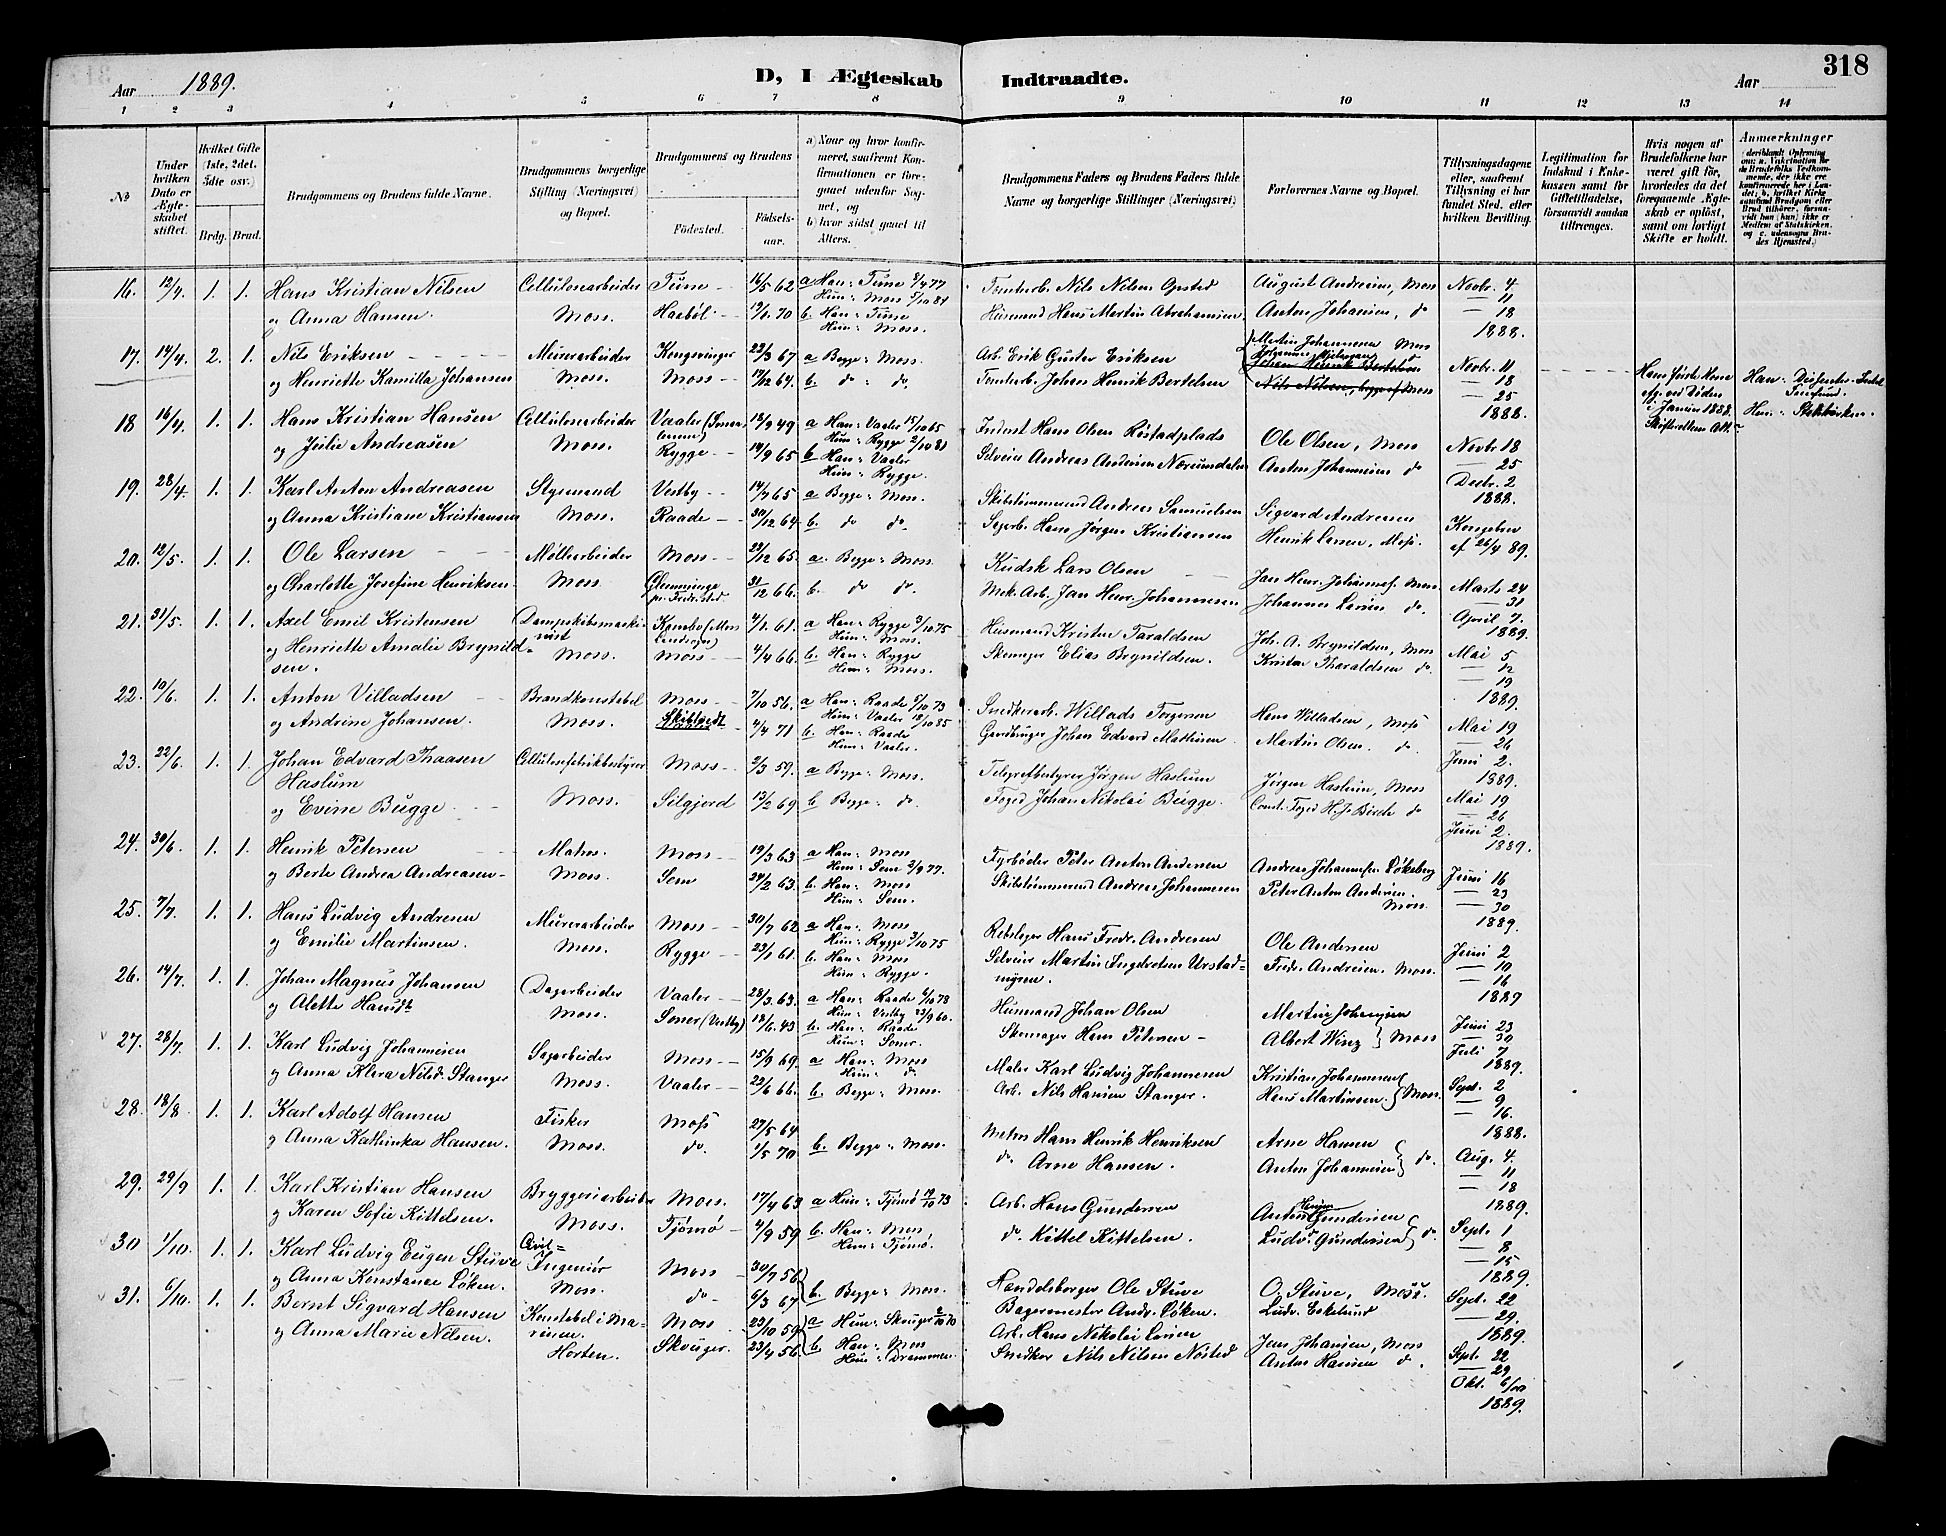 318
Aar 1889.
D, I Ægteskab Indtraadte.
Aar
1 2 3 4 5 6 7 8 9 10 11 12 13 14
No
Under hvilken Dato er Ægteskabet stiftet.
Hvilket Gifte (1ste, 2det, 3die osv.)
Brdg. Brud.
Brudgommens og Brudens fulde Navne.
Brudgommens borgerlige Stilling (Næringsvei) og Bopæl.
Brudgommens og Brudens
Fødested.
Fødselsaar.
a) Naar og hvor konfirmeret, saafremt Konfirmationen er foregaaet udenfor Sognet, og
b) hvor sidst gaaet til Alters.
Brudgommens Faders og Brudens Faders fulde Navne og borgerlige Stillinger (Næringsvei)
Forlovernes Navne og Bopæl.
Tillysningsdagene eller, saafremt Tillysning ei har fundet Sted, efter hvilken Bevilling.
Legitimation for Indskud i Enkekassen samt for Giftetilladelse, forsaavidt saadan tiltrænges.
Hvis nogen af Brudefolkene har været gift før, hvorledes da det foregaaende Ægteskab er opløst, samt om lovligt Skifte er holdt.
Anmærkninger
16. 12/4. 1. 1. Hans Kristian Nilsen Cellulosearbeider Tune 16/5 62 a Han: Tune 8/4 77 Tomterb. Nils Nilsen Opsted August Andresen, Moss Novbr. 4
Hun: Moss 5/10 84 — 11
og Anna Hansen. Moss. Haabøl 19/6. 70 b. Han: Tune Husmand Hans Martin Abrahamsen Anton Johansen, do — 18
Hun: Moss. 1888.
17. 14/4. 2. 1. Nils Eriksen Murerarbeider Kongsvinger 22/3 67 a Begge: Moss. Arb. Erik Guster Eriksen Martin Johannesen Moss Novbr. 11
Johan Henrik Bertelsen
og Henriette Kamilla Johansen Moss. Moss 17/12 64. b. do do. Tomterb. Johan Henrik Bertelsen Nils Nilsen, begge af Moss — 18
— 25
1888.
Hans første Kone afg. ved Døden i Januar 1888. Skifterettens Att.
Han: Dissenter. Hun: Statskirken.
18 16/4. 1. 1. Hans Kristian Hansen Cellulosearbeider Vaaler 18/9 49 a Han: Vaaler 15/10 65 Inderst Hans Olsen Røstadplads Ole Olsen, Moss Novbr 18
Hun: Rygge 2/10 81
og Julie Andreasen Moss. Rygge 14/9 65 b Han: Vaaler Selveier Andreas Andersen Norumdalen Anton Johannesen do — 25
Hun: Rygge. Decbr. 2
1888.
19. 28/4. 1. 1. Karl Anton Andreasen Styrmand Vestby 14/7 65 a Begge: Moss. Skibstømmermand Andreas Samuelsen Sigvard Andreasen Kongebev
og Anna Kristiane Kristiansen Moss. Raade 30/12 64 b. do do. Sagarb. Hans Jørgen Kristiansen Henrik Larsen, Moss. af 26/4 89.
20. 12/5. 1. 1. Ole Larsen Møllearbeider Moss 22/12 65. a. Begge: Moss. Kudsk Lars Olsen Jan Henr. Johannes. Moss Marts 24
og Charlotte Josefine Henriksen Moss. Glemminge pr. Fredr.stad 31/12 66. b. do do. Mek. Arb. Jan Henr. Johannesen Johannes Larsen do. — 31
April 7.
1889.
21. 31/5. 1. 1. Axel Emil Kristensen Dampskibsmaskinist Kambo (Moss Landsogn) 4/1. 61. a Han: Rygge 3/10 75 Husmand Kristen Taraldsen Joh. A. Brynildsen, Moss Mai 5
Hun: Moss.
og Henriette Amalie Brynildsen. Moss. Moss 4/4 66. b Han: Rygge Skomager Elias Brynildsen. Kristen Tharaldsen do. — 12
Hun: Moss. — 19
1889.
22. 10/6. 1. 1. Anton Villadsen Brandkonstabel Moss 7/10 56. a Han: Raade 5/10 73 Snedkerarb. Willads Torgersen Hans Willadsen, Moss Mai 19
Hun: Vaaler 18/10 85
og Andrine Johansen. Moss. Skibtvedt 4/4 71 b. Han: Raade Gaardbruger Johan Edvard Mathisen Martin Olsen. do. — 26
Hun: Vaaler. Juni 2.
1889.
23. 22/6. 1. 1. Johan Edvard Thaasen Haslum Cellulosefabrikbestyrer Moss 2/3 59. a Begge: Moss. Telegrafbestyrer Jørgen Haslum Jørgen Haslum, Moss Mai 19
og Evine Bugge. Moss. Silgjord 13/2 69 b Begge: do. Foged Johan Nikolai Bugge. Const. Foged H. J. Birch do — 26
Juni 2.
1889.
24. 30/6. 1. 1. Henrik Petersen Matros. Moss 19/3 63 a Han: Moss Fyrbøder Peter Anton Andersen Andreas Johannesen Løkeberg Juni 16
Hun: Sem 2/9 77.
og Berte Andrea Andreasen Moss. Sem 24/2 63. b. Han: Moss Skibstømmermand Andreas Johannesen Peter Anton Andersen. Moss. — 23
Hun: Sem. — 30
1889.
25. 7/7. 1. 1. Hans Ludvig Andresen Murerarbeider Moss 30/7 62 a Han: Moss Rebslager Hans Fredr. Andresen Ole Andersen Juni 2
Hun: Rygge 3/10 75
og Emilie Martinsen. Moss. Rygge 23/1 61. b. Han: Moss Selveier Martin Ingebretsen Urstadmyren. Fredr. Andresen. Moss. — 10
Hun: Rygge. — 16
1889
26. 14/7. 1. 1. Johan Magnus Johansen Dagarbeider Vaaler 28/3. 63. a Han: Raade 6/10 78 Husmand Johan Olsen Martin Johansen Juni 23
Hun: Vestby 23/9 60.
og Alette Hansdt Moss. Soner (Vestby) 18/6. 43 b. Han: Raade Skomager Hans Petersen Albert Winz } Moss — 30
Hun: Soner. Juli 7
1889.
27. 28/7. 1. 1. Karl Ludvig Johannesen Sagarbeider Moss 15/9 69 a Han: Moss Maler Karl Ludvig Johannesen Kristian Johannesen Sept. 2
Hun: do
og Anna Klara Nilsd. Stanger Moss. Vaaler 22/6 66. b. Begge: Moss. Arb. Nils Hansen Stanger. Hans Martinsen } Moss. — 9
— 16.
1888.
28. 18/8. 1. 1. Karl Adolf Hansen Fisker Moss 27/5 64 Matros Hans Henrik Henriksen Arne Hansen Aug. 4.
og Anna Kathinka Hansen. Moss. do. 1/5 70 b. Begge: Moss. do. Arne Hansen. Anton Johannesen } do. — 11
— 18
1889.
29. 29/9 1. 1. Karl Kristian Hansen Bryggeriarbeider Moss. 17/4 63 a Hun: Tjømø 19/10 73 Arb. Hans Gundersen Anton Gundersen Sept. 1
og Karen Sofie Kittelsen. Moss. Tjømø 4/9 59 b. Han: Moss do. Kittel Kittelsen. Ludv. Gundersen } do. — 8
Hun: Tjømø. — 15
1889.
30 1/10. 1. 1. Karl Ludvig Eugen Stuve Civil-Ingeniør Moss 30/7 56 Handelsborger Ole Stuve O. Stuve, Moss. Sept. 22
og Anna Konstance Løken. Moss. do 6/3 67 b. Begge: Moss. Bagermester Andr. Løken. Ludv. Eskelund — 29.
1889.
31. 6/10. 1. 1. Bernt Sigvard Hansen Konstabel i Marinen. Moss 23/10 59 a Hun: Skouger 2/10 70 Arb. Hans Nikolai Larsen Jens Johansen, Moss Sept. 22
og Anna Marie Nilsen. Horten. Skouger. 23/4 56 b. Han: Moss Snedker Nils Nilsen Nøsted Anton Hansen do. — 29
Hun: Drammen. Okt. 6/
1889.